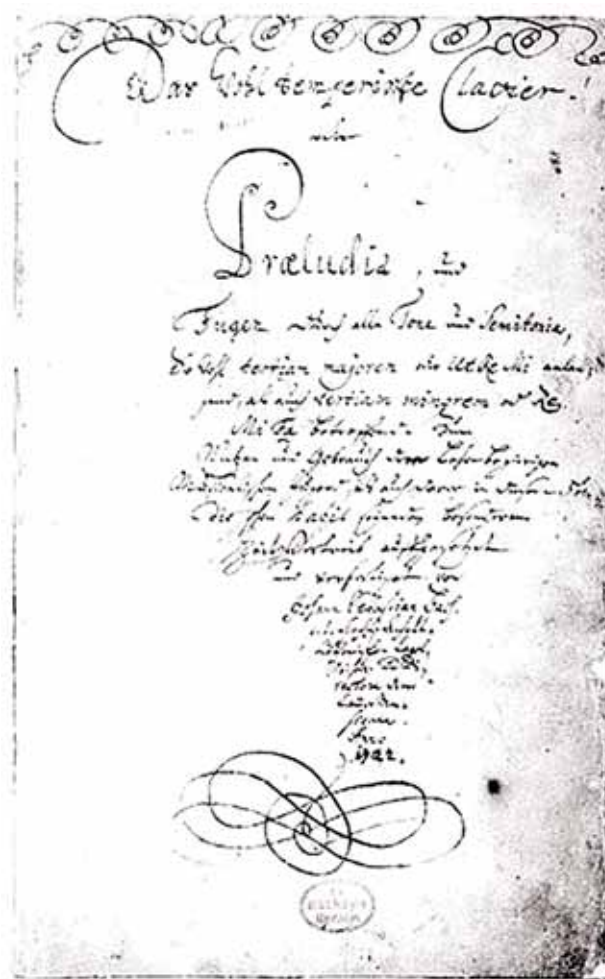 Das Wohltemperirte Clavier.
oder
Præludia, und
Fugen durch alle Tone und Semitonia,
So wohl tertiam majorem oder Ut Re Mi anlan-
gend, als auch tertiam minorem oder Re
Mi Fa betreffend. Zum
Nutzen und Gebrauch der Lehrbegierigen
Musicalischen Jugend, als auch derer in diesem stu-
dio schon habil seyenden besonderem
Zeitvertreib auffgesetzet
und verfertiget von
Johann Sebastian Bach.
1722.